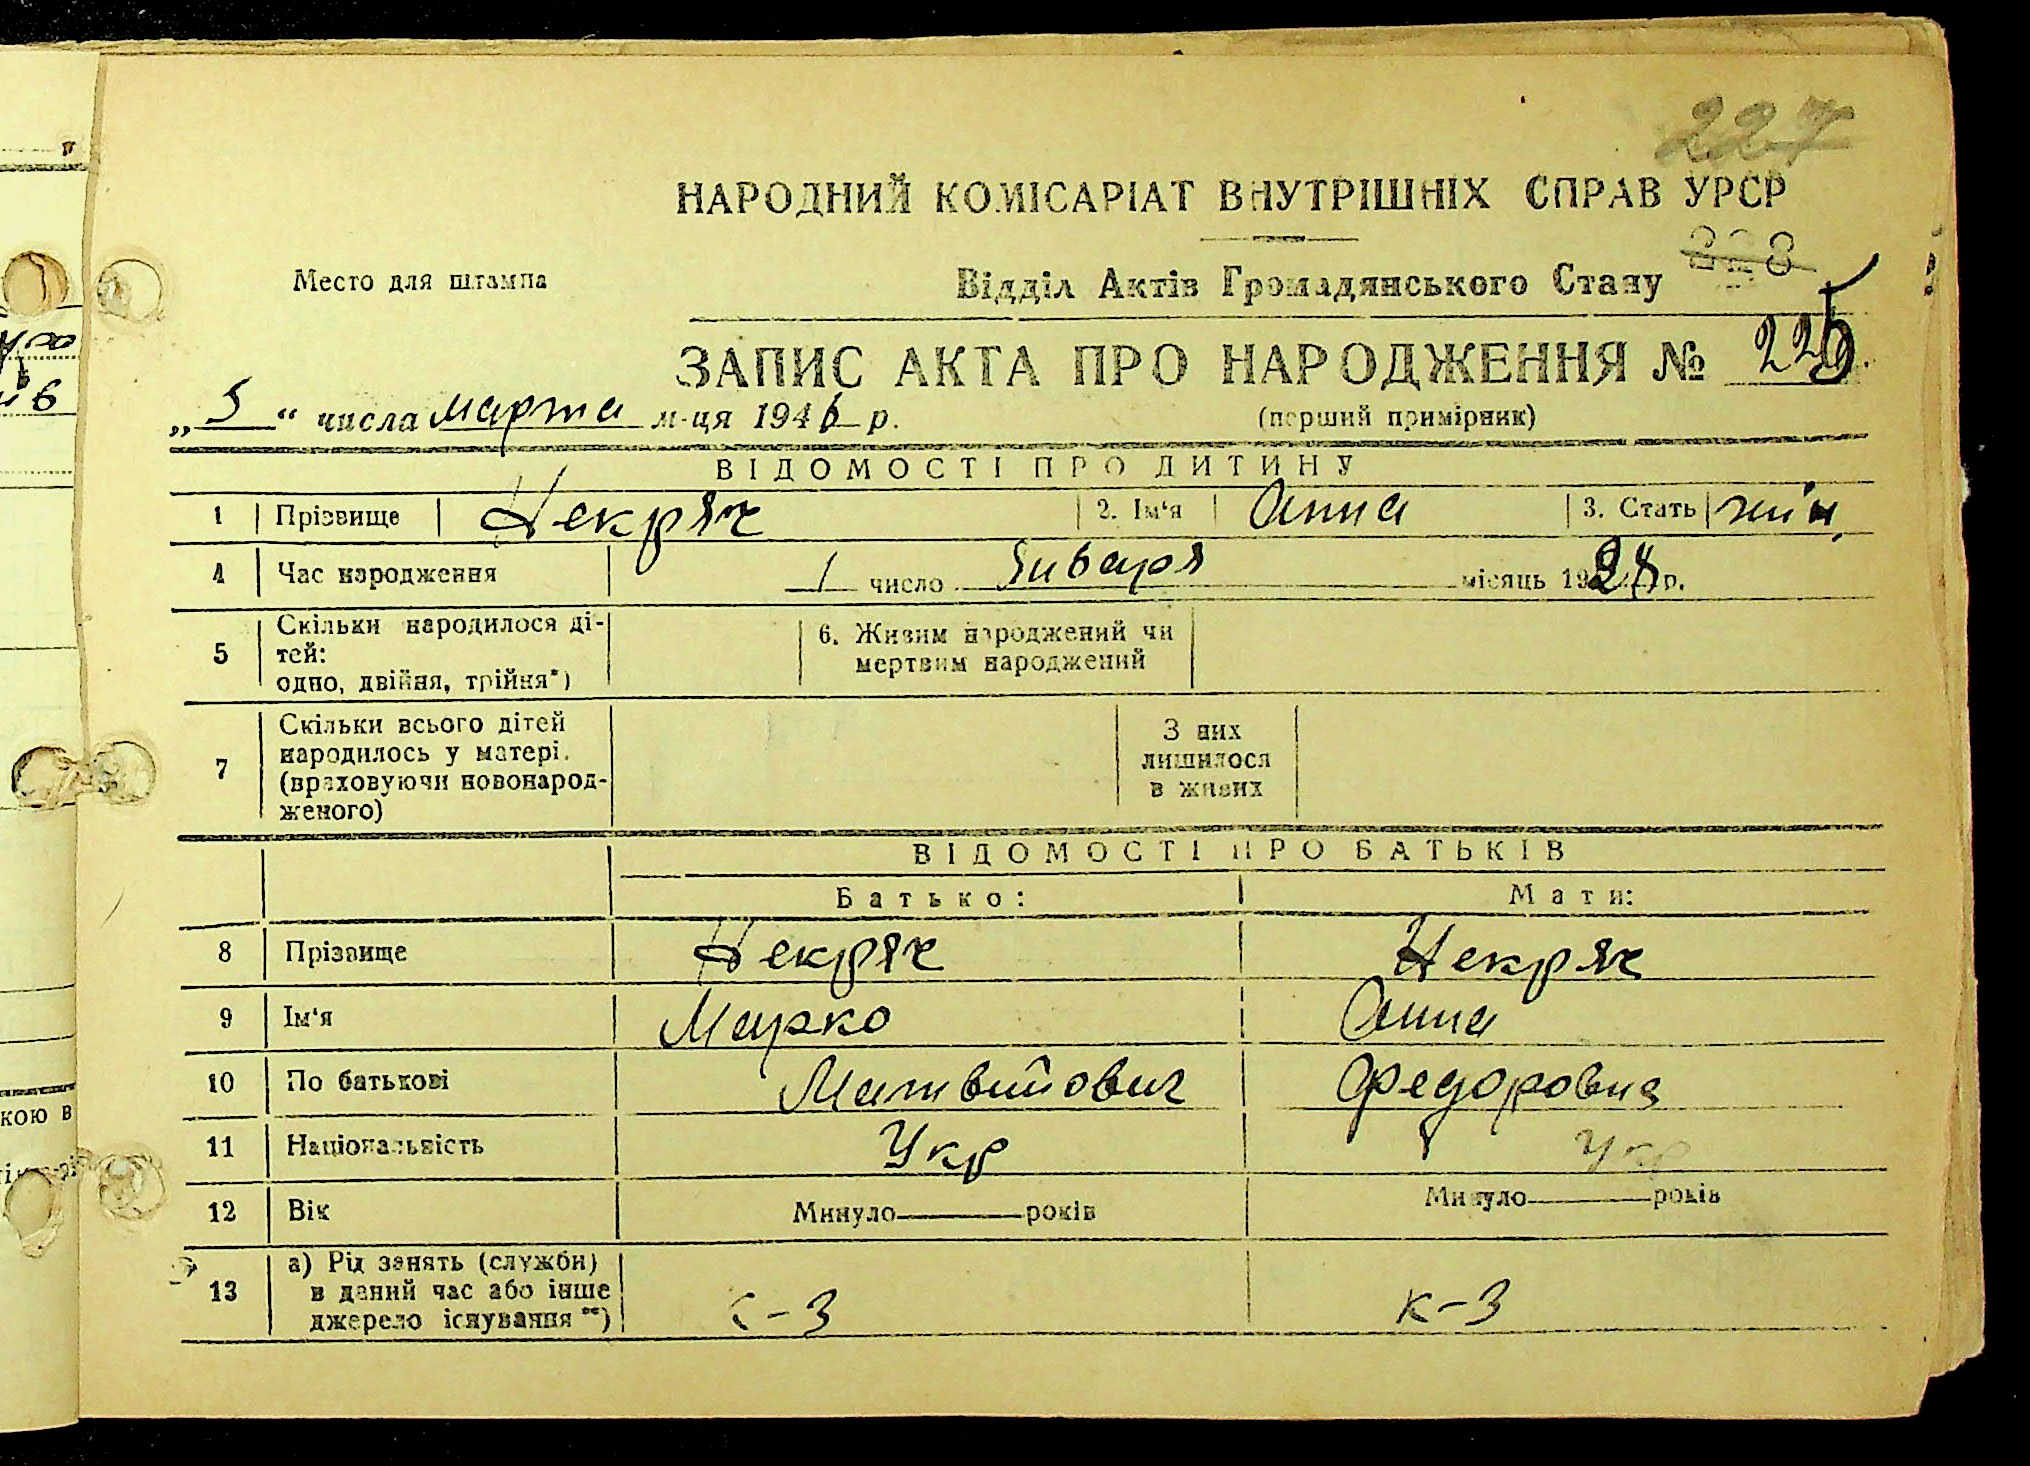 227
НАРОДНИЙ КОМІСАРІАТ ВНУТРІШНІХ СПРАВ УРСР
228
Место для штампа
Відділ Актів Громадянського Стану
ЗАПИС АКТА ПРО НАРОДЖЕННЯ № 225
„5“ числа марта м-ця 1946 р.
(перший примірник)
ВІДОМОСТІ ПРО ДИТИНУ
1 Прізвище Некряч 2. Ім‘я Анна 3. Стать жін.
4 Час народження 1 число Января місяць 1928 р.
5 Скільки народилося ді-
тей:
одно, двійня, трійня*)
6. Живим народжений чи
мертвим народжений
7 Скільки всього дітей
народилось у матері.
(враховуючи новонарод-
женого)
З них
лишилося
в живих
ВІДОМОСТІ ПРО БАТЬКІВ
Батько: Мати:
8 Прізвище Некряч Некряч
9 Ім‘я Марко Анна
10 По батькові Матвийович Федоровна
11 Національність Укр Укр
12 Вік Минуло———років Минуло———років
13 а) Рід занять (служби)
в даний час або інше
джерело існування **)
к-з к-з
кою в